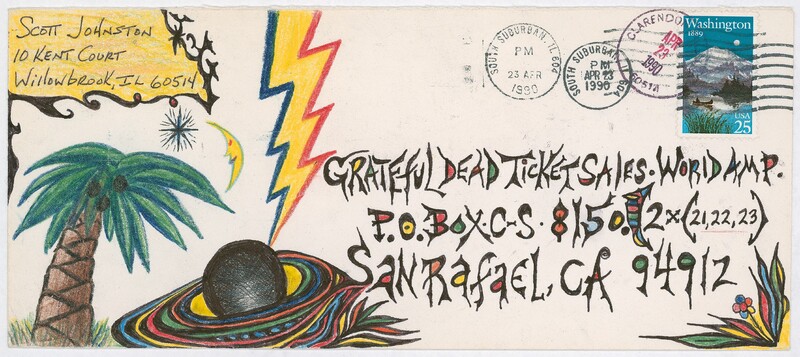 Scott Johnston
10 Kent Court
Willowbrook, IL 60514
SOUTH SUBURBAN, IL 604
PM
23 APR
1990
SOUTH SUBURBAN, IL 604
PM
APR 23
1990
CLARENDO
APR
23
1990
60514
Washington
1889
USA
25
GRATEFUL DEAD TICKET SALES · WORLD AMP.
P.O. BOX · C-S · $150. 2x(21,22,23)
SAN RAFAEL, CA 94912